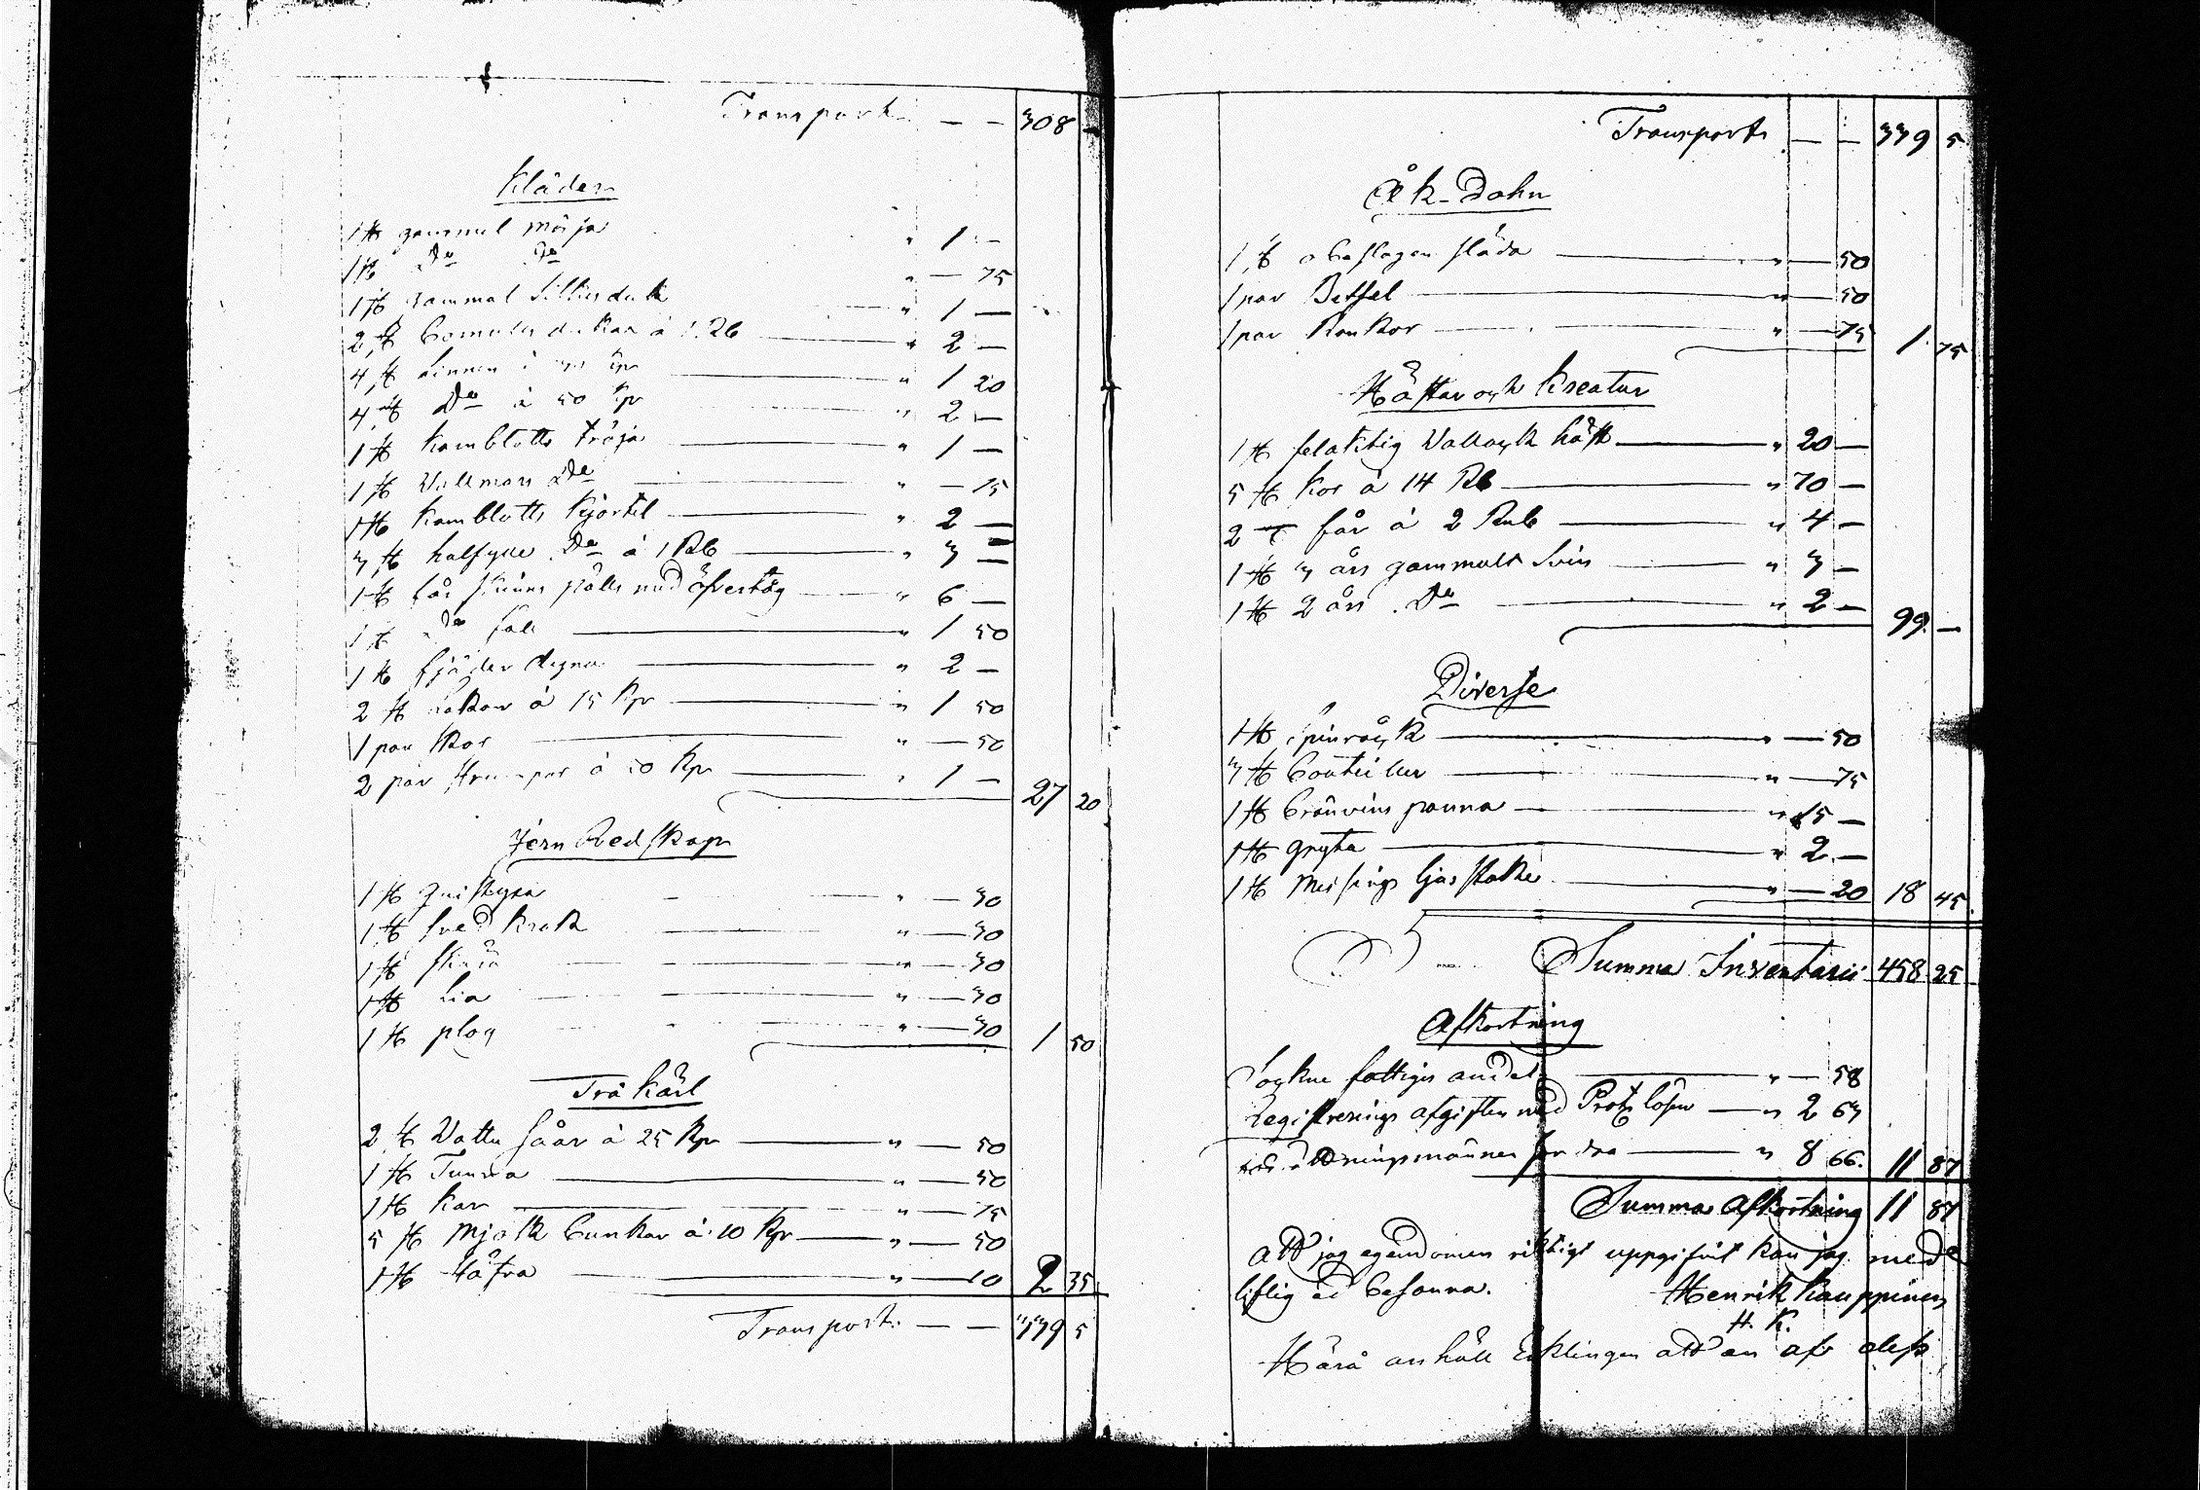 Transport — — 308 —
Kläder
1 st gammul möja " 1 —
1 st Do Do " — 75
1 st gammal Silkesduk " 1 —
2 st bomulls dukar à 1 Rb " 2 —
4 st Linnen à 30 kp " 1 20
4 st Do à 50 Kp " 2 —
1 st kamblotts tröja " 1 —
1 st Wallmars Do " — 75
1 st kamblotts kjortel " 2 —
3 st halfylle Do à 1 Rb " 3 —
1 st får skinns pälls med öfvertög " 6 —
1 st Do fäll " 1 50
1 st fjäder dyna " 2 —
2 st Lakan à 75 Kp " 1 50
1 par skor " — 50
2 par strumpor à 50 Kp " 1 — 27 20
Jern Redskap
1 st " — 30
1 st sved krok " — 30
1 st skära " — 30
1 st Lia " — 30
1 st plog " — 30 1 50
Trä kärl
2 st Vattu såar à 25 Kp " — 50
1 st Tunna " — 50
1 st kar " — 75
5 st Mjölk bunkar à 10 Kp " — 50
1 st " — 10 2 35
Transport — — 339 5
Transport — — 339 5
Åk-Dohn
1 st obeslagen släda " — 50
1 par Betsel " — 50
1 par Rankor " — 75 1 75
Hästar och Kreatur
1 st felaktig Wallack häst " 20 —
5 st kor à 14 Rb " 70 —
2 st får à 2 Rub " 4 —
1 st 3 års gammalt Svin " 3 —
1 st 2 års Do " 2 — 99 —
Diverse
1 st spinråck " — 50
3 st bouteiller " — 75
1 st brännvins panna " 15 —
1 st gryta " 2 —
1 st Messings ljusstake " — 20 18 45
Summa Inventarii 458 25
Afkortning
Sockne fattiges andel " — 58
Registrerings afgiften med Prot. lösen " 2 63
" 8 66. 11 87
Summa Afkortning 11 87
Att jag egendomen riktigt uppgifvit kan jag med e
liflig ed besanna. Henrik Kauppinen
H. K.
Härå anhåll Enklingen att en afr aless